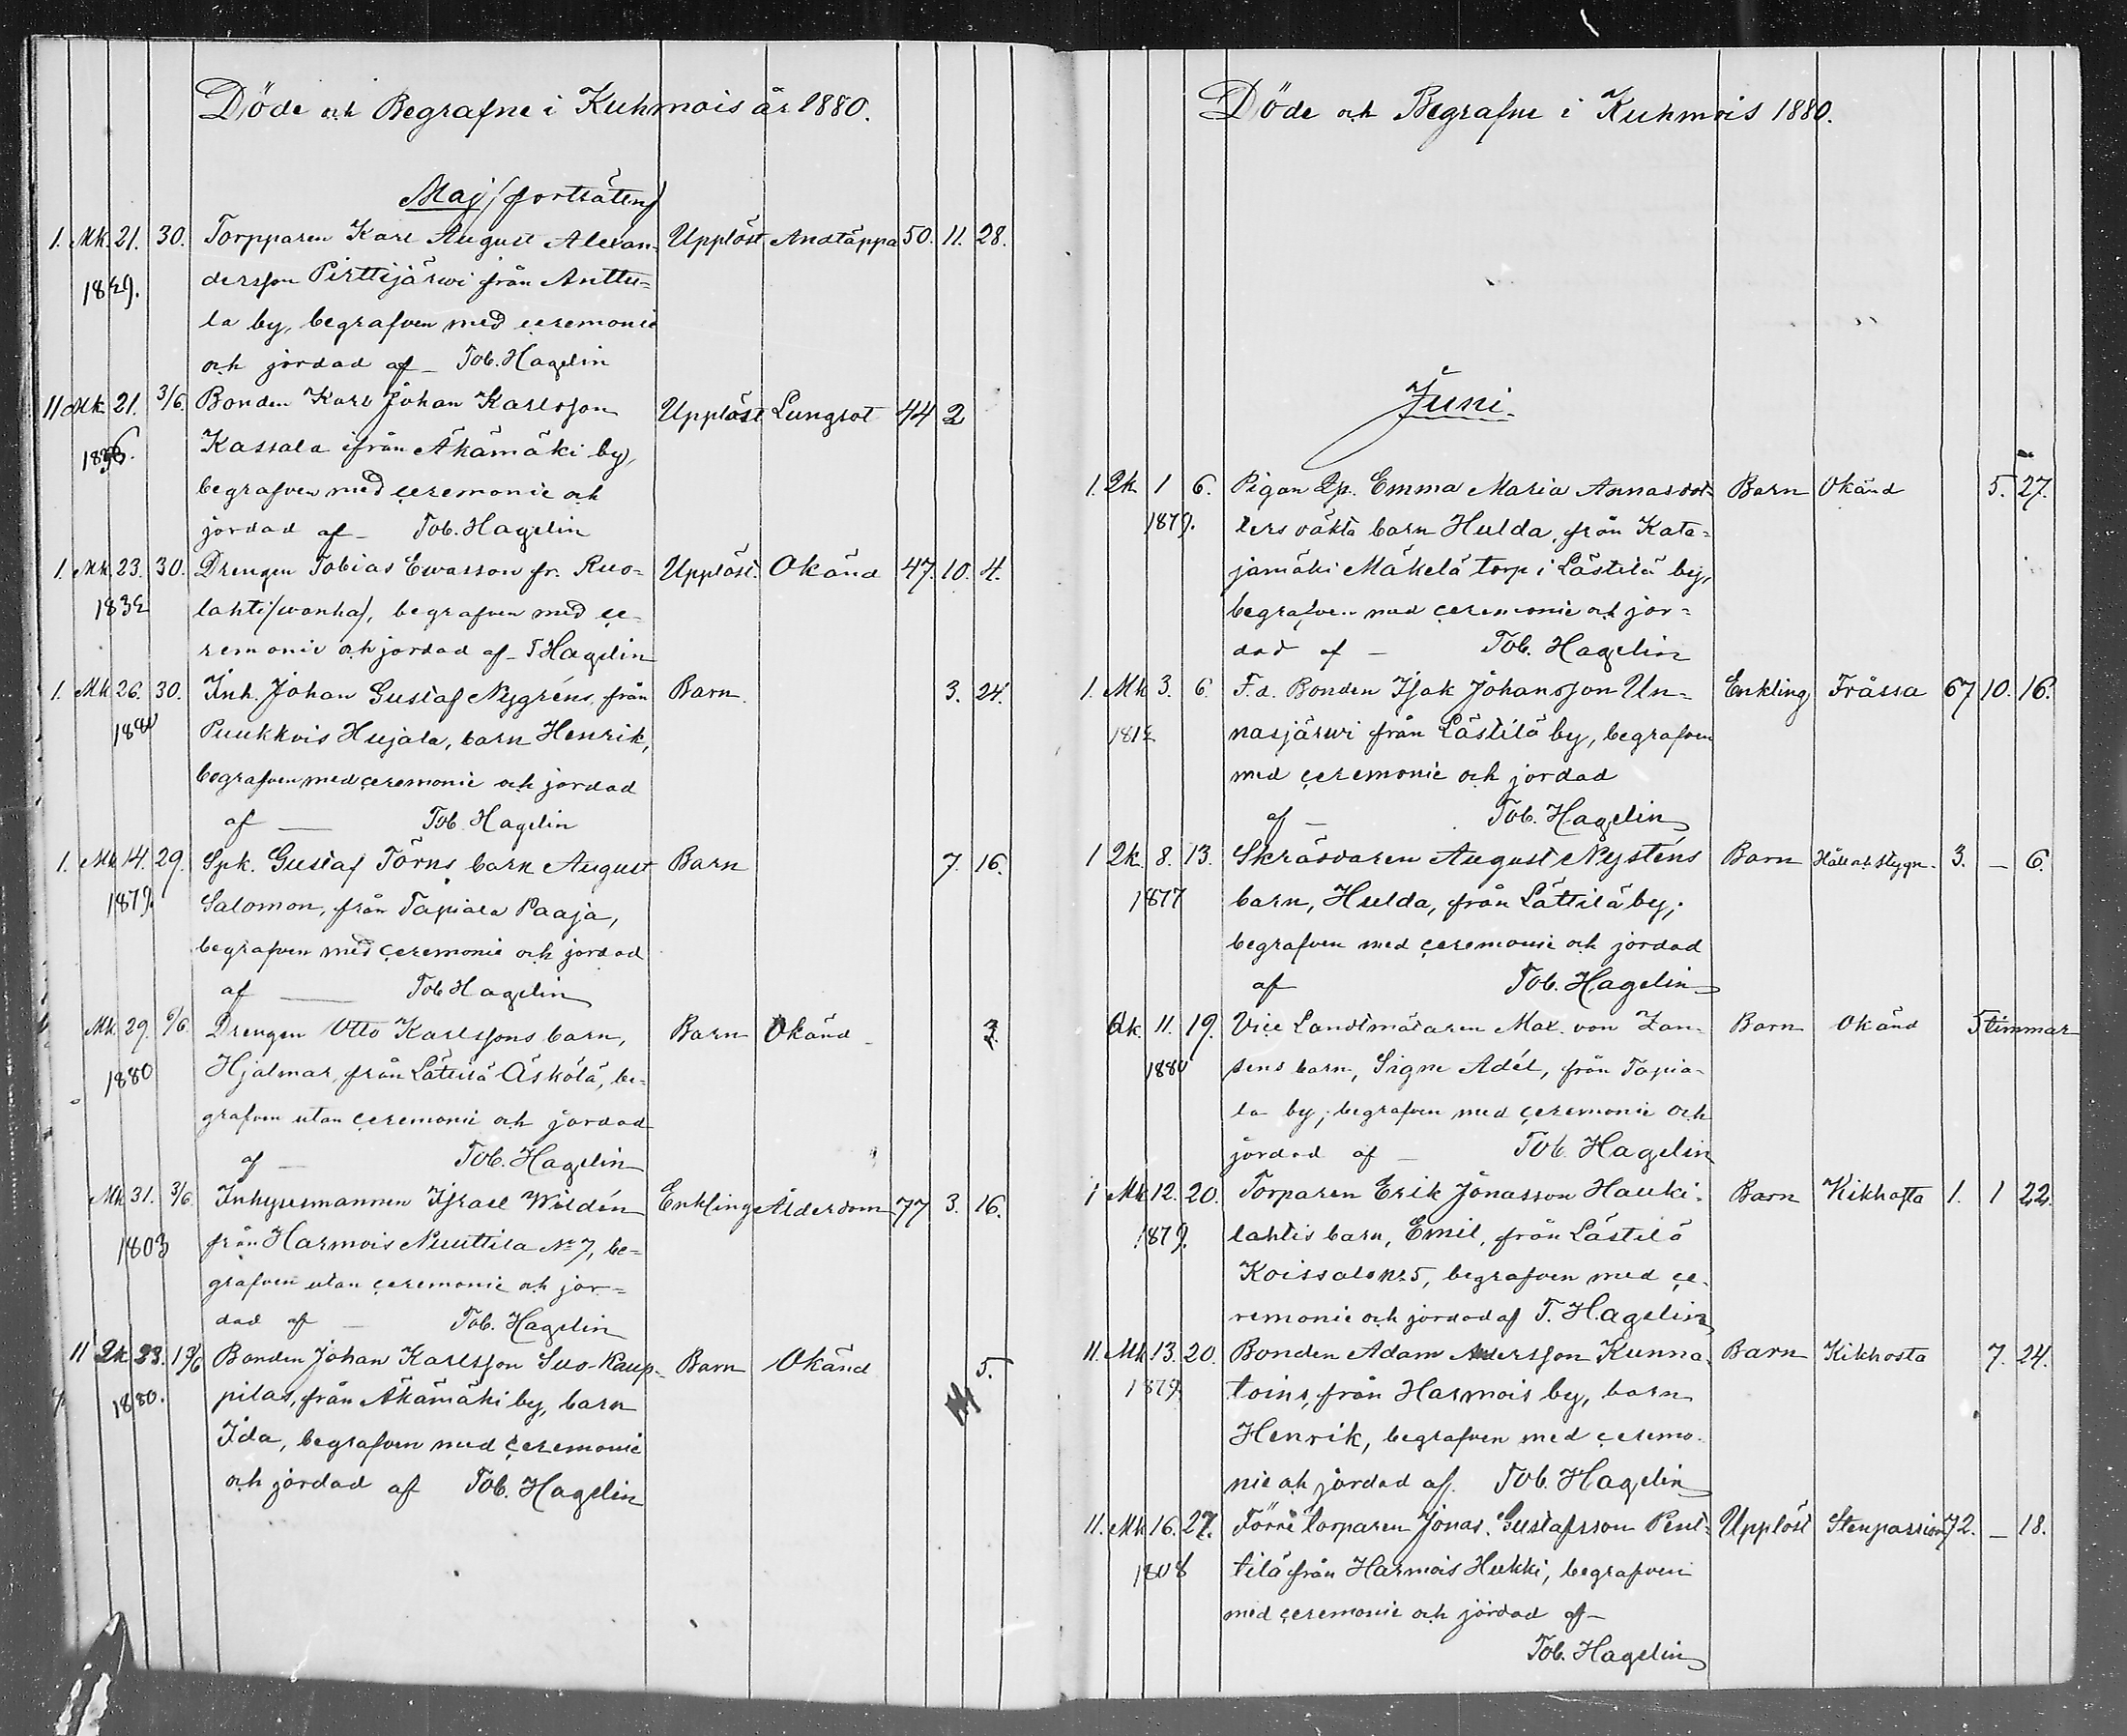 Döde och Begrafne i Kuhmois år 1880.
Maj (fortsäten)
1. Mk. 21. 30. Torpparen Karl August Alexan- Upplöst Andtäppa 50. 11. 28.
18 9. dersson Pirttijärwi från Anttu-
la by, begrafven med ceremonie
och jordad af – Tob. Hagelin
11 Mk 21. 3/6. Bonden Karl Johan Karlsson Upplöst Lungsot 44 2
Kassala ifrån Äkämäki by,
begrafven med ceremonie och
jordad af – Tob. Hagelin
1. Mk. 23. 30. Drengen Tobias Ewasson fr. Ruo- Upplöst. Okänd 47. 10. 4.
1832 lahti (wanha), begrafven med ce-
remonie och jordad af – T Hagelin
1. Mk 26. 30. Inh. Johan Gustaf Nygréns, från Barn. 3. 24.
1880 Puukkois Hujala, barn Henrik,
begrafven med ceremonie och jordad
af — Tob. Hagelin
1. Mk 14. 29. Spk. Gustaf Törns barn August Barn 7. 16.
1879. Salomon, från Tapiala Paaja,
begrafven med ceremonie och jordad
af — Tob Hagelin
Mk. 29. 6/6. Drengen Otto Karlssons barn, Barn Okänd – 3.
1880 Hjalmar, från Äskölä, be-
grafven utan ceremonie och jordad
af — Tob. Hagelin
Mk 31. 3/6. Inhysesmannen Israel Wildén Enkling Ålderdom 77 3. 16.
1803 från Harmois Nuuttila No 7, be-
grafven utan ceremonie och jor-
dad af — Tob. Hagelin
11 Qk 23. 13/6 Bonden Johan Karlsson Suo-Kaup- Barn Okänd 5.
1880. pilas, från Äkämäki by, barn
Ida, begrafven med ceremonie
och jordad af Tob. Hagelin
Döde och Begrafne i Kuhmois 1880.
Juni.
1. Qk 1 6. Pigan Qp. Emma Maria Annasdot- Barn Okänd 5. 27.
1879. ters oäkta barn Hulda, från Kata-
jamäki Mäkelä torp i Lästilä by,
begrafven med ceremonie och jor-
dad af – Tob. Hagelin
1. Mk 3. 6. F.d. Bonden Isak Johansson Un- Enkling Frässa 67 10. 16.
1812 nasjärwi från Lästilä by, begrafven
med ceremonie och jordad
af – Tob. Hagelin
1 Qk. 8. 13. Skräddaren August Nysténs Barn Håll och Stygn. 3. – 6.
1877 barn, Hulda, från Lättilä by,
begrafven med ceremonie och jordad
af Tob. Hagelin
Qk. 11. 19. Vice Landtmätaren Max. von Zan- Barn Okänd 5 timmar
1880 sens barn, Signe Adél, från Tapia-
la by, begrafven med ceremonie och
jordad af – Tob. Hagelin
1 Mk 12. 20. Torparen Erik Jonasson Hauki- Barn Kikhosta 1. 1 22.
1879. lahtis barn, Emil, från Lästilä
Koissalo No 5, begrafven med ce-
remonie och jordad af T. Hagelin
11. Mk 13. 20. Bonden Adam Andersson Kunna- Barn Kikhosta 7. 24.
1879. toins, från Harmois by, barn
Henrik, begrafven med ceremo-
nie och jordad af. Tob. Hagelin
11. Mk 16. 27. Förre torparen Jonas Gustafsson Pent- Upplöst Stenpassion 72. – 18.
1808 tilä från Harmois Hukki, begrafven
med ceremonie och jordad af –
Tob. Hagelin